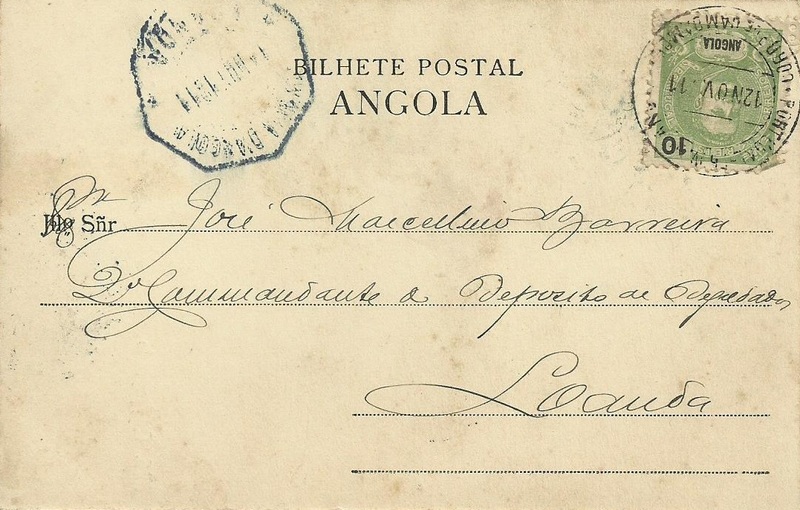 BILHETE POSTAL
ANGOLA
ANGOLA
12 NOV. 11
10
D'ANGOLA
Illo Sñr José Marcellino Barreira
2º Commandante do Deposito de Degredados
Loanda